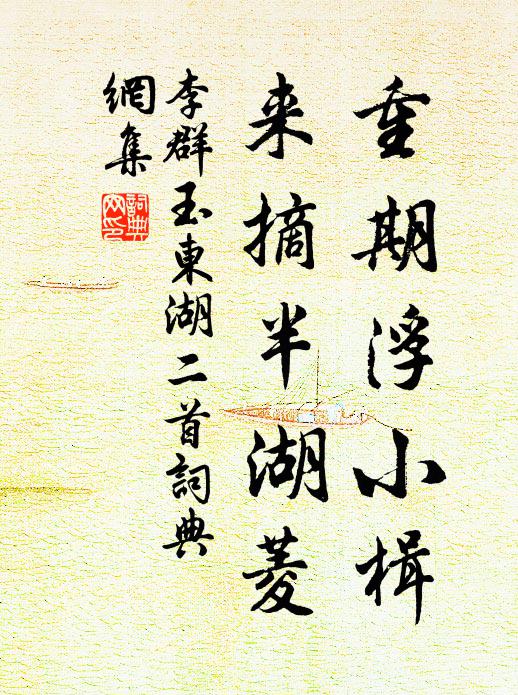 重期浮小楫
来摘半湖菱
李群玉東湖二首詞典
網集
詞典
网印